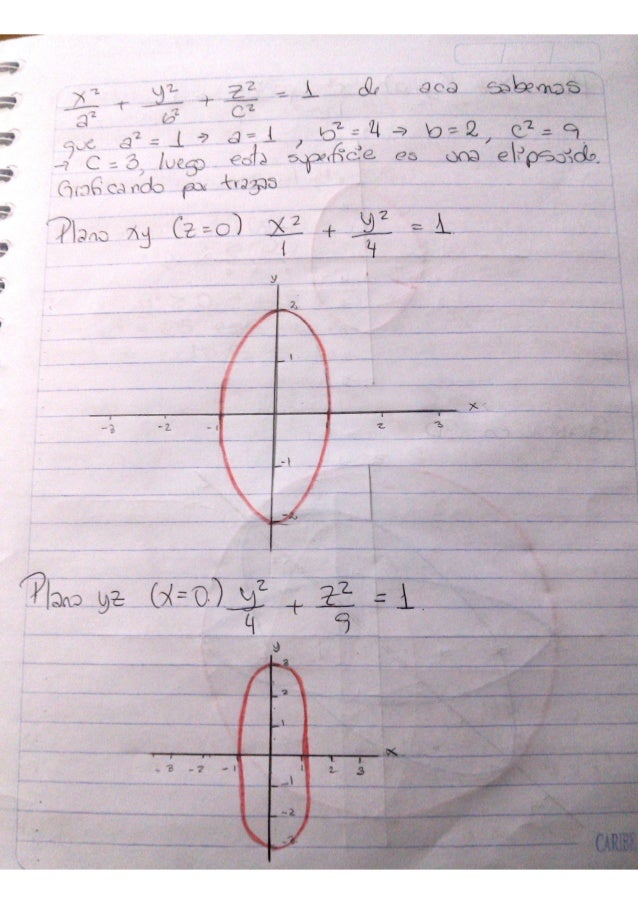 x²/a² + y²/b² + z²/c² = 1 de aca sabemos
que a² = 1 → a = 1, b² = 4 → b = 2, c² = 9
→ C = 3, luego esta superficie es una elipsoide.
Graficando por trazas
Plano xy (z=0) x²/1 + y²/4 = 1
y
2
1
-3 -2 -1 2 3 x
-1
-2
Plano yz (x=0) y²/4 + z²/9 = 1.
y
3
2
1
-3 -2 -1 1 2 3 x
-1
-2
-3
CARIBE